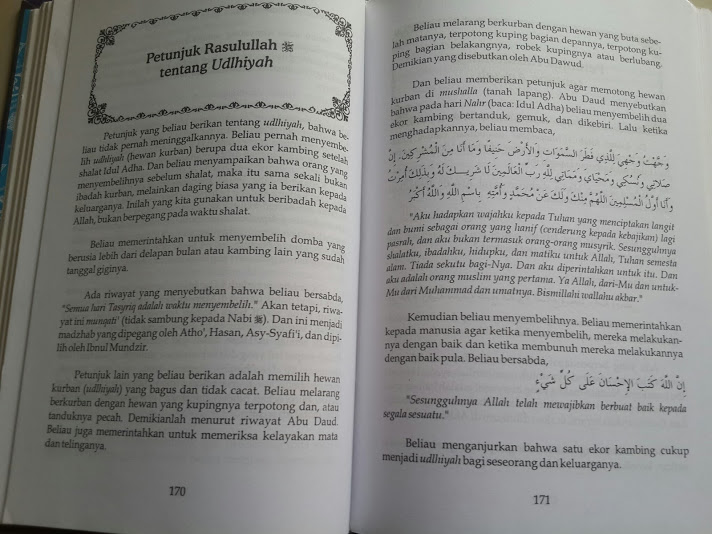 Petunjuk Rasulullah ﷺ
tentang Udlhiyah
Petunjuk yang beliau berikan tentang udlhiyah, bahwa be-
liau tidak pernah meninggalkannya. Beliau pernah menyembe-
lih udlhiyah (hewan kurban) berupa dua ekor kambing setelah
shalat Idul Adha. Dan beliau menyampaikan bahwa orang yang
menyembelihnya sebelum shalat, maka itu sama sekali bukan
ibadah kurban, melainkan daging biasa yang ia berikan kepada
keluarganya. Inilah yang kita gunakan untuk beribadah kepada
Allah, bukan berpegang pada waktu shalat.
Beliau memerintahkan untuk menyembelih domba yang
berusia lebih dari delapan bulan atau kambing lain yang sudah
tanggal giginya.
Ada riwayat yang menyebutkan bahwa beliau bersabda,
"Semua hari Tasyriq adalah waktu menyembelih." Akan tetapi, riwa-
yat ini munqati' (tidak sambung kepada Nabi ﷺ). Dan ini menjadi
madzhab yang dipegang oleh Atho', Hasan, Asy-Syafi'i, dan dipi-
lih oleh Ibnul Mundzir.
Petunjuk lain yang beliau berikan adalah memilih hewan
kurban (udlhiyah) yang bagus dan tidak cacat. Beliau melarang
berkurban dengan hewan yang kupingnya terpotong dan, atau
tanduknya pecah. Demikianlah menurut riwayat Abu Daud.
Beliau juga memerintahkan untuk memeriksa kelayakan mata
dan telinganya.
170
Beliau melarang berkurban dengan hewan yang buta sebe-
lah matanya, terpotong kuping bagian depannya, terpotong ku-
ping bagian belakangnya, robek kupingnya atau berlubang.
Demikian yang disebutkan oleh Abu Dawud.
Dan beliau memberikan petunjuk agar memotong hewan
kurban di mushalla (tanah lapang). Abu Daud menyebutkan
bahwa pada hari Nahr (baca: Idul Adha) beliau menyembelih dua
ekor kambing bertanduk, gemuk, dan dikebiri. Lalu ketika
menghadapkannya, beliau membaca,
وَجَّهْتُ وَجْهِيَ لِلَّذِي فَطَرَ السَّمَوَاتِ وَالْأَرْضَ حَنِيفًا وَمَا أَنَا مِنَ الْمُشْرِكِينَ، إِنَّ
صَلَاتِي وَنُسُكِي وَمَحْيَايَ وَمَمَاتِي لِلَّهِ رَبِّ الْعَالَمِينَ لَا شَرِيكَ لَهُ وَبِذَلِكَ أُمِرْتُ
وَأَنَا أَوَّلُ الْمُسْلِمِينَ اللَّهُمَّ مِنْكَ وَلَكَ عَنْ مُحَمَّدٍ وَأُمَّتِهِ بِاسْمِ اللَّهِ وَاللَّهُ أَكْبَرُ
"Aku hadapkan wajahku kepada Tuhan yang menciptakan langit
dan bumi sebagai orang yang hanif (cenderung kepada kebajikan) lagi
pasrah, dan aku bukan termasuk orang-orang musyrik. Sesungguhnya
shalatku, ibadahku, hidupku, dan matiku untuk Allah, Tuhan semesta
alam. Tiada sekutu bagi-Nya. Dan aku diperintahkan untuk itu. Dan
aku adalah orang muslim yang pertama. Ya Allah, dari-Mu dan untuk-
Mu dari Muhammad dan umatnya. Bismillahi wallahu akbar."
Kemudian beliau menyembelihnya. Beliau memerintahkan
kepada manusia agar ketika menyembelih, mereka melakukan-
nya dengan baik dan ketika membunuh mereka melakukannya
dengan baik pula. Beliau bersabda,
إِنَّ اللَّهَ كَتَبَ الْإِحْسَانَ عَلَى كُلِّ شَيْءٍ
"Sesungguhnya Allah telah mewajibkan berbuat baik kepada
segala sesuatu."
Beliau menganjurkan bahwa satu ekor kambing cukup
menjadi udlhiyah bagi seseorang dan keluarganya.
171